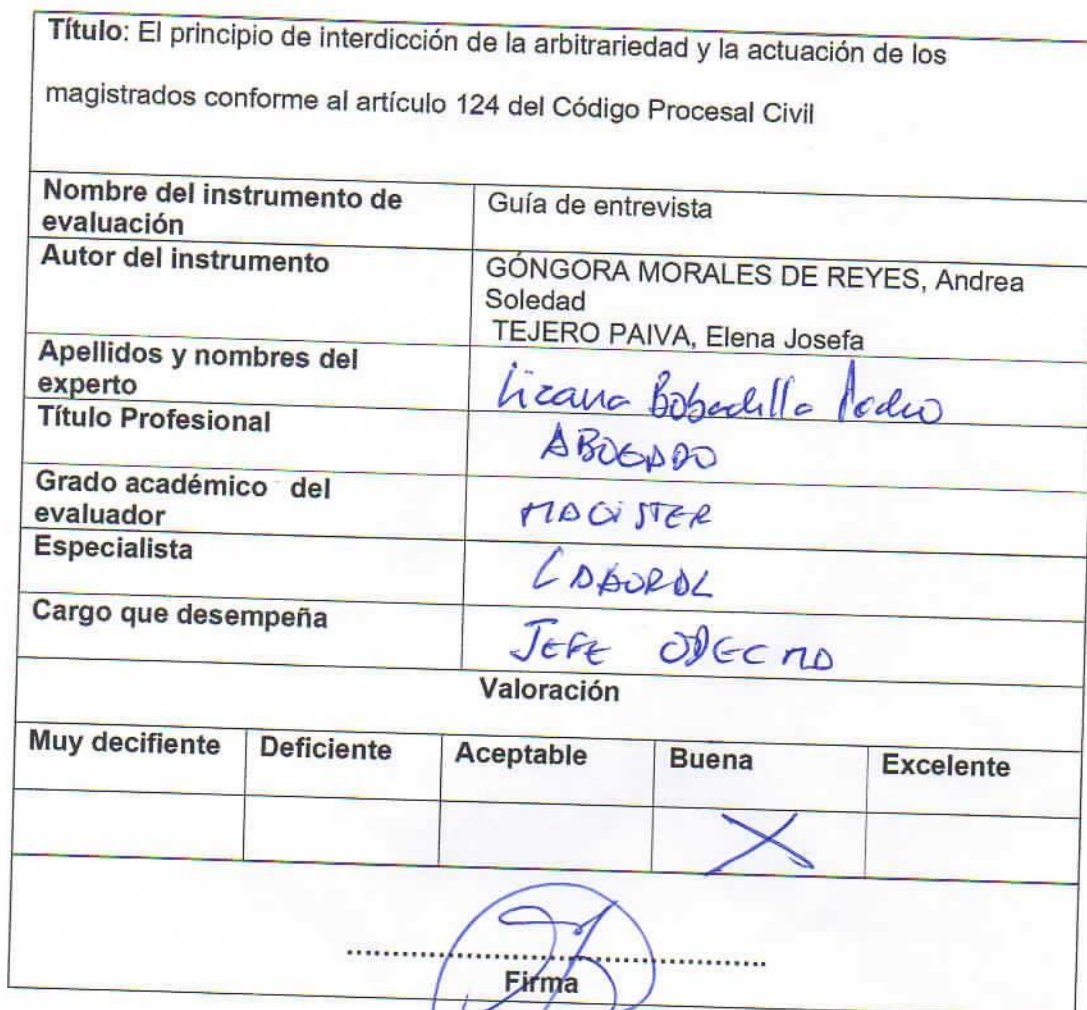 Título: El principio de interdicción de la arbitrariedad y la actuación de los
magistrados conforme al artículo 124 del Código Procesal Civil
Nombre del instrumento de
evaluación
Guía de entrevista
Autor del instrumento
GÓNGORA MORALES DE REYES, Andrea
Soledad
TEJERO PAIVA, Elena Josefa
Apellidos y nombres del
experto
Lizana Bobadilla Pedro
Título Profesional
ABOGADO
Grado académico del
evaluador
MAGISTER
Especialista
LABORAL
Cargo que desempeña
JEFE ODECMA
Valoración
Muy decifiente Deficiente Aceptable Buena Excelente
X
Firma